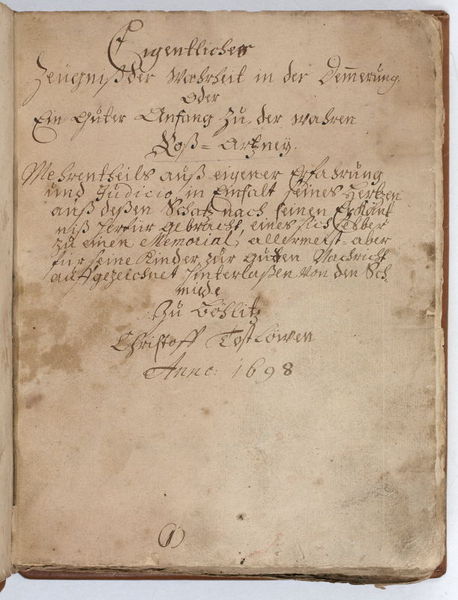 Eigentliches
Zeügniß der Warheit in der Demerung
oder
Ein Guter Anfang zu der wahren
Roß=Artzney.
Mehrentheils auß eigener Erfahrung
und Judicio, in Einfalt seines Hertzen
auß deßen Schatz nach seinen Erkänt
niß herfür gebracht, eines sich selber
zu einen Memorial, allermeist aber
für seine Kinder, zur guten Nachricht
auffgezeichnet hinterlaßen von den Sch
miede
Zu Böhlitz
Christoff
Anno: 1698
(1)